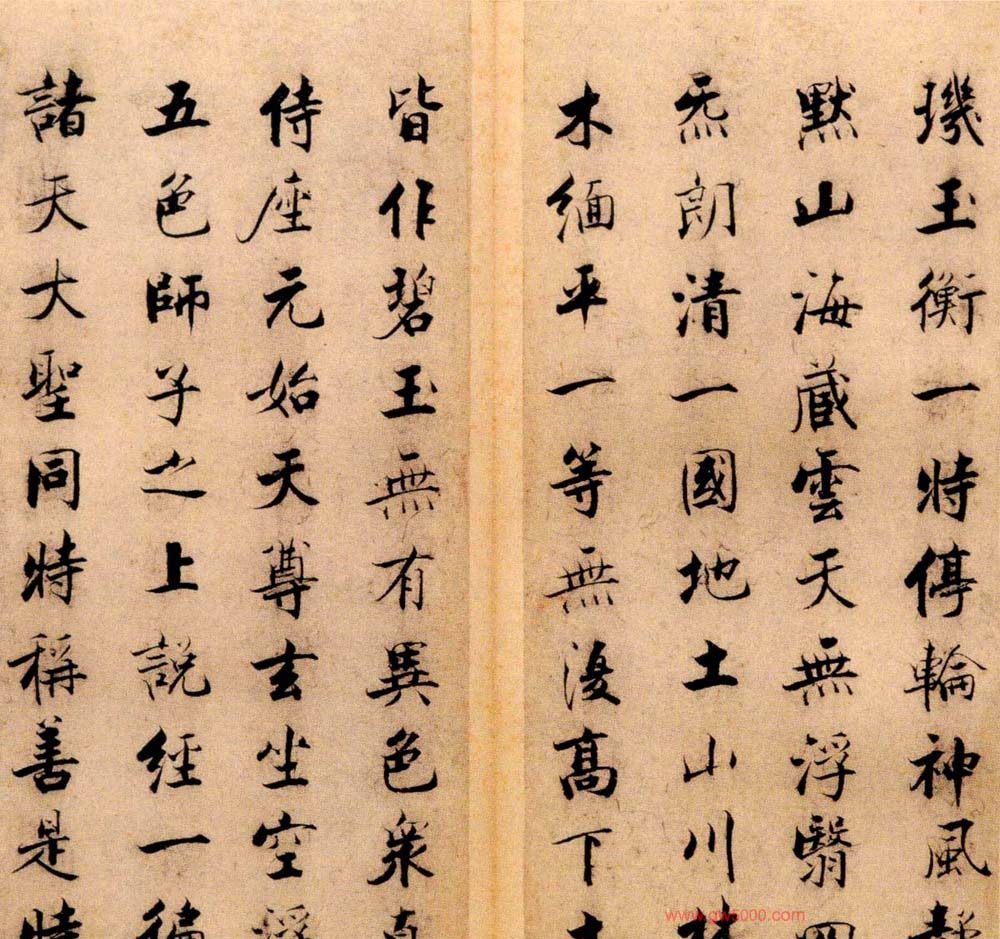 璣玉衡一時停輪神風静
默山海藏雲天無浮翳四
炁朗清一國地土山川林
木緬平一等無復高下土
皆作碧玉無有異色衆真
侍座元始天尊玄坐空浮
五色師子之上説經一徧
諸天大聖同時稱善是時
www.gw5000.com